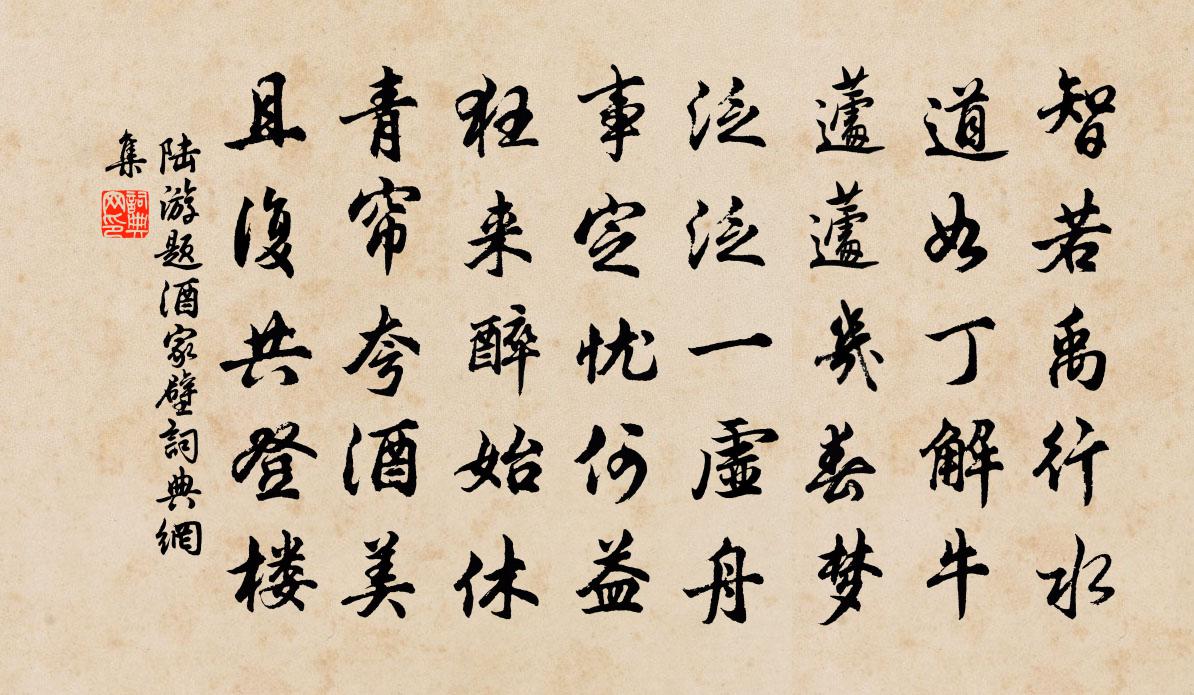 智若禹行水
道如丁解牛
蘧蘧幾春梦
泛泛一虚舟
事定忧何益
狂来醉始休
青帘夸酒美
且復共登楼
陆游题酒家壁詞典網
集
詞典
网印